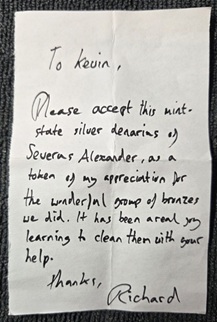 To Kevin,
Please accept this mint-
state silver denarius of
Severus Alexander, as a
token of my appreciation for
the wonderful group of bronzes
we did. It has been a real joy
learning to clean them with your
help.
Thanks,
Richard